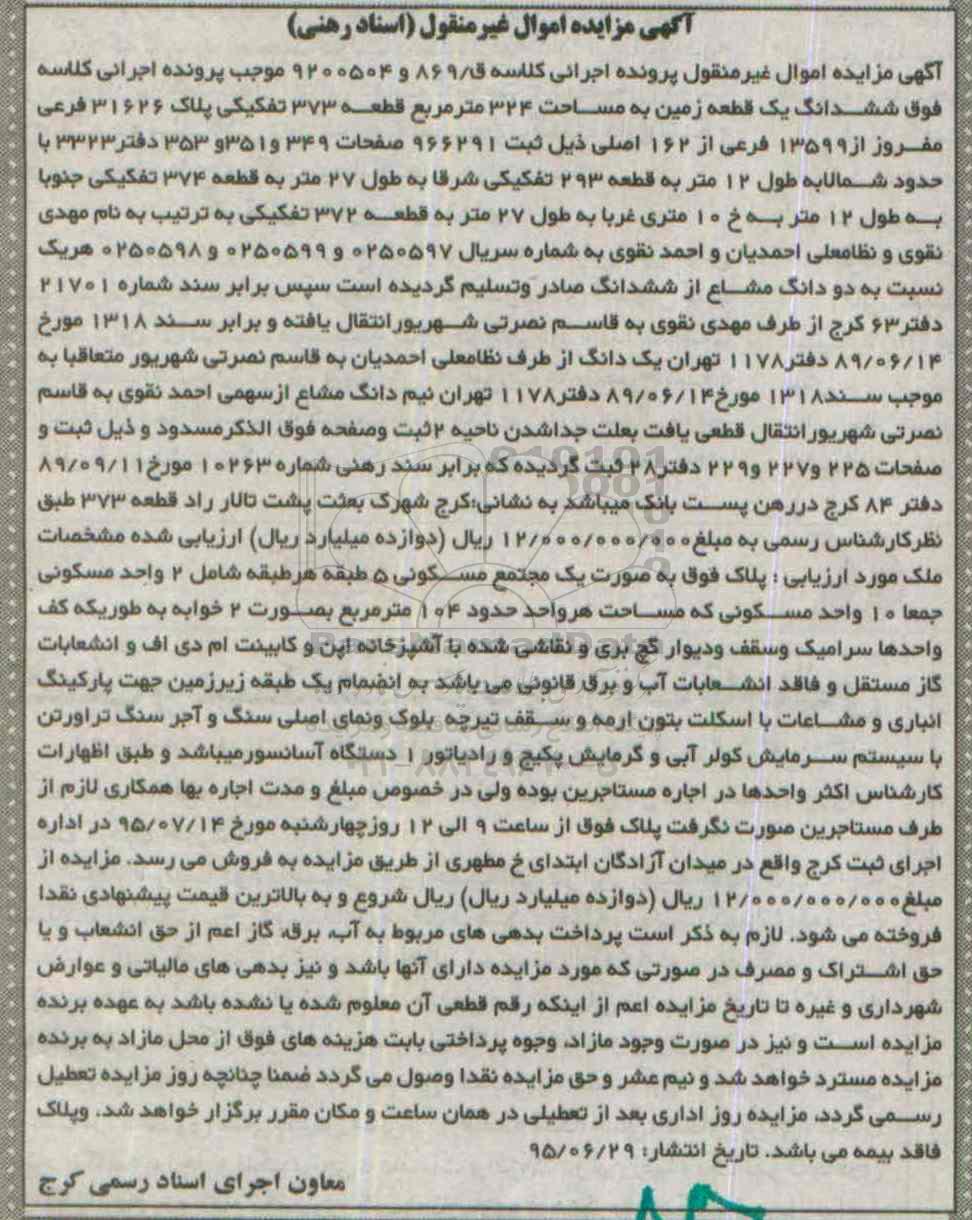 آگهی مزایده اموال غیرمنقول (اسناد رهنی)
آگهی مزایده اموال غیرمنقول پرونده اجرائی کلاسه ق/۸۶۹ و ۹۲۰۰۵۰۴ موجب پرونده اجرائی کلاسه
فوق ششدانگ یک قطعه زمین به مساحت ۳۲۴ مترمربع قطعه ۳۷۳ تفکیکی پلاک ۳۱۶۲۶ فرعی
مفروز از۱۳۵۹۹ فرعی از ۱۶۲ اصلی ذیل ثبت ۹۶۶۲۹۱ صفحات ۳۴۹ و۳۵۱و ۳۵۳ دفتر۳۳۲۳ با
حدود شمالابه طول ۱۲ متر به قطعه ۲۹۳ تفکیکی شرقا به طول ۲۷ متر به قطعه ۳۷۴ تفکیکی جنوبا
به طول ۱۲ متر به خ ۱۰ متری غربا به طول ۲۷ متر به قطعه ۳۷۲ تفکیکی به ترتیب به نام مهدی
نقوی و نظامعلی احمدیان و احمد نقوی به شماره سریال ۰۲۵۰۵۹۷ و ۰۲۵۰۵۹۹ و ۰۲۵۰۵۹۸ هریک
نسبت به دو دانگ مشاع از ششدانگ صادر وتسلیم گردیده است سپس برابر سند شماره ۲۱۷۰۱
دفتر۶۳ کرج از طرف مهدی نقوی به قاسم نصرتی شهریورانتقال یافته و برابر سند ۱۳۱۸ مورخ
۸۹/۰۶/۱۴ دفتر۱۱۷۸ تهران یک دانگ از طرف نظامعلی احمدیان به قاسم نصرتی شهریور متعاقبا به
موجب سند۱۳۱۸ مورخ۸۹/۰۶/۱۴ دفتر۱۱۷۸ تهران نیم دانگ مشاع ازسهمی احمد نقوی به قاسم
نصرتی شهریورانتقال قطعی یافت بعلت جداشدن ناحیه ۲ثبت وصفحه فوق الذکرمسدود و ذیل ثبت و
صفحات ۲۲۵ و۲۲۷ و۲۲۹ دفتر۲۸ ثبت گردیده که برابر سند رهنی شماره ۱۰۲۶۳ مورخ۸۹/۰۹/۱۱
دفتر ۸۴ کرج دررهن پست بانک میباشد به نشانی:کرج شهرک بعثت پشت تالار راد قطعه ۳۷۳ طبق
نظرکارشناس رسمی به مبلغ۱۲/۰۰۰/۰۰۰/۰۰۰ ریال (دوازده میلیارد ریال) ارزیابی شده مشخصات
ملک مورد ارزیابی : پلاک فوق به صورت یک مجتمع مسکونی ۵ طبقه هرطبقه شامل ۲ واحد مسکونی
جمعا ۱۰ واحد مسکونی که مساحت هرواحد حدود ۱۰۴ مترمربع بصورت ۲ خوابه به طوریکه کف
واحدها سرامیک وسقف ودیوار گچ بری و نقاشی شده با آشپزخانه اپن و کابینت ام دی اف و انشعابات
گاز مستقل و فاقد انشعابات آب و برق قانونی می باشد به انضمام یک طبقه زیرزمین جهت پارکینگ
انباری و مشاعات با اسکلت بتون ارمه و سقف تیرچه بلوک ونمای اصلی سنگ و آجر سنگ تراورتن
با سیستم سرمایش کولر آبی و گرمایش پکیج و رادیاتور ۱ دستگاه آسانسورمیباشد و طبق اظهارات
کارشناس اکثر واحدها در اجاره مستاجرین بوده ولی در خصوص مبلغ و مدت اجاره بها همکاری لازم از
طرف مستاجرین صورت نگرفت پلاک فوق از ساعت ۹ الی ۱۲ روزچهارشنبه مورخ ۹۵/۰۷/۱۴ در اداره
اجرای ثبت کرج واقع در میدان آزادگان ابتدای خ مطهری از طریق مزایده به فروش می رسد. مزایده از
مبلغ۱۲/۰۰۰/۰۰۰/۰۰۰ ریال (دوازده میلیارد ریال) ریال شروع و به بالاترین قیمت پیشنهادی نقدا
فروخته می شود. لازم به ذکر است پرداخت بدهی های مربوط به آب، برق، گاز اعم از حق انشعاب و یا
حق اشتراک و مصرف در صورتی که مورد مزایده دارای آنها باشد و نیز بدهی های مالیاتی و عوارض
شهرداری و غیره تا تاریخ مزایده اعم از اینکه رقم قطعی آن معلوم شده یا نشده باشد به عهده برنده
مزایده است و نیز در صورت وجود مازاد، وجوه پرداختی بابت هزینه های فوق از محل مازاد به برنده
مزایده مسترد خواهد شد و نیم عشر و حق مزایده نقدا وصول می گردد ضمنا چنانچه روز مزایده تعطیل
رسمی گردد، مزایده روز اداری بعد از تعطیلی در همان ساعت و مکان مقرر برگزار خواهد شد. وپلاک
فاقد بیمه می باشد. تاریخ انتشار: ۹۵/۰۶/۲۹
معاون اجرای اسناد رسمی کرج